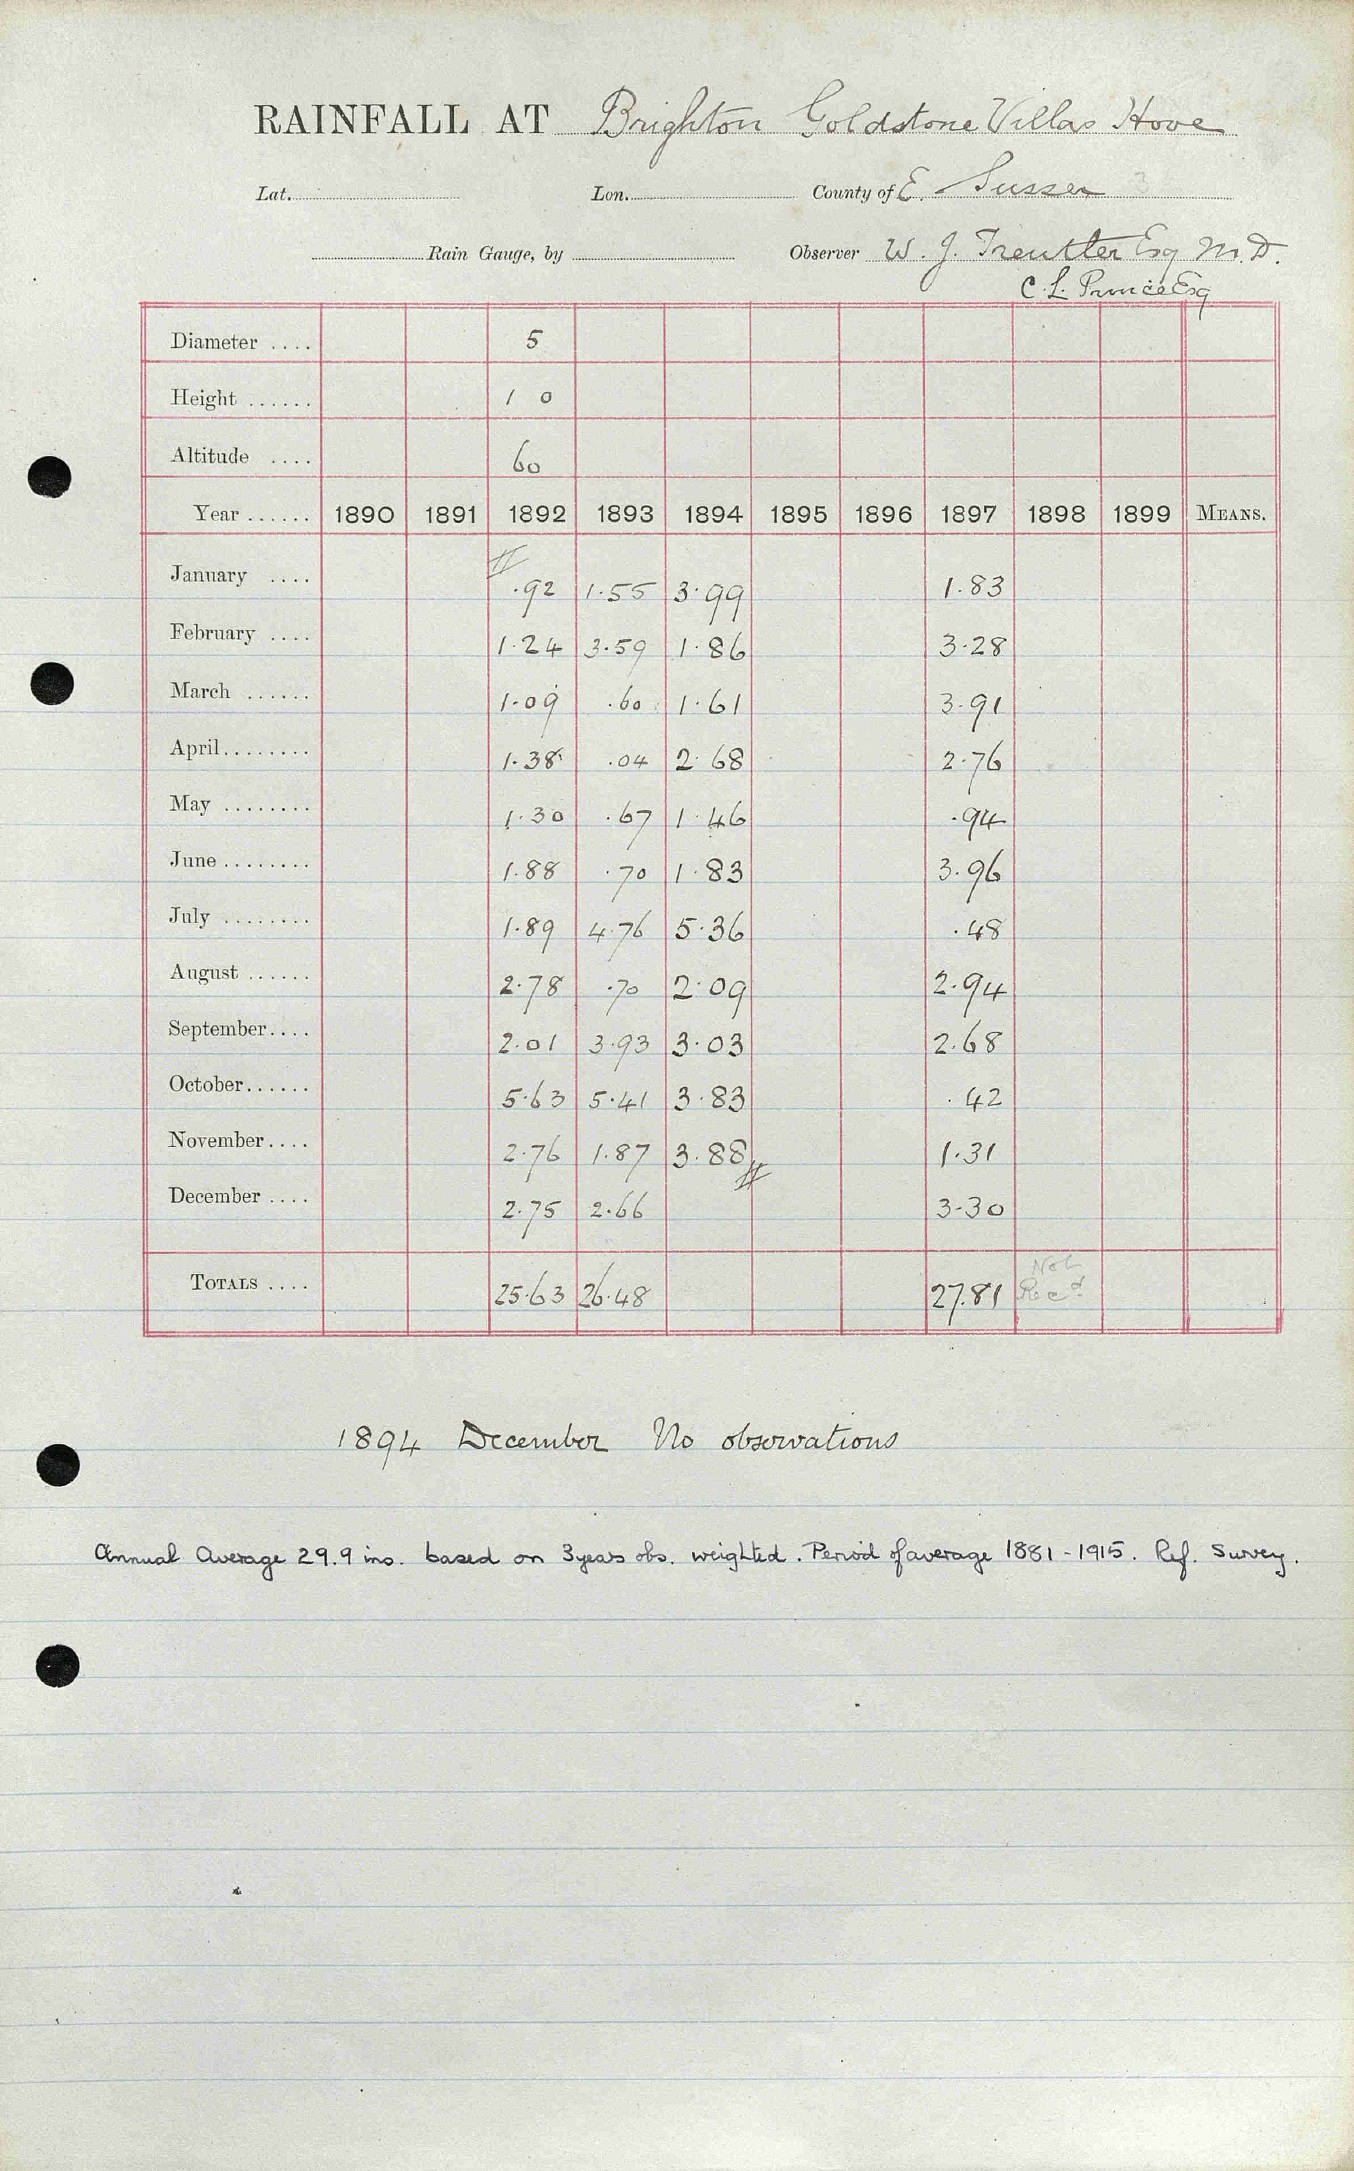 RAINFALL AT Brighton Goldstone Villas Hove
Lat. Lon. County of E. Sussex 3
Rain Gauge, by Observer W. J. Treutler Esq M.D.
C. L. Prince Esq
Diameter .... 5
Height ...... 1 0
Altitude .... 60
Year ...... 1890 1891 1892 1893 1894 1895 1896 1897 1898 1899 MEANS.
January .... .92 1.55 3.99 1.83
February .... 1.24 3.59 1.86 3.28
March ...... 1.09 .60 1.61 3.91
April........ 1.38 .04 2.68 2.76
May ........ 1.30 .67 1.46 .94
June ........ 1.88 .70 1.83 3.96
July ........ 1.89 4.76 5.36 .48
August ...... 2.78 .70 2.09 2.94
September.... 2.01 3.93 3.03 2.68
October...... 5.63 5.41 3.83 .42
November.... 2.76 1.87 3.88 1.31
December .... 2.75 2.66 3.30
TOTALS .... 25.63 26.48 27.81 Not Recd
1894 December No observations
Annual Average 29.9 ins. based on 3 years obs. weighted. Period of average 1881-1915. Ref. Survey.